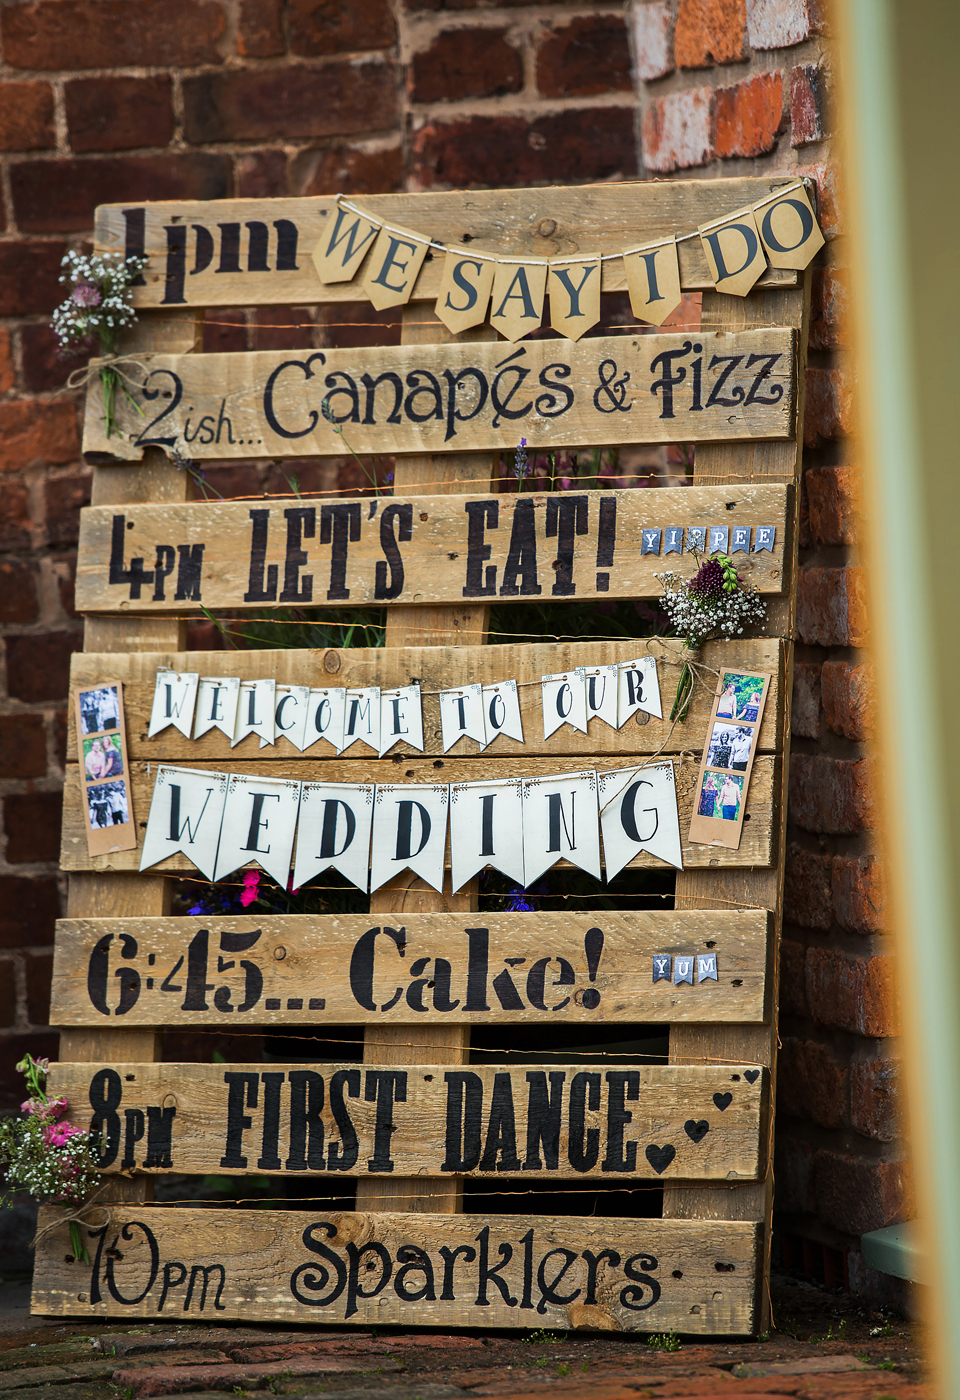 1pm WE SAY I DO
2ish... Canapés & Fizz
4PM LET'S EAT! YIPPEE
WELCOME TO OUR
WEDDING
6:45... Cake! YUM
8PM FIRST DANCE
10pm Sparklers